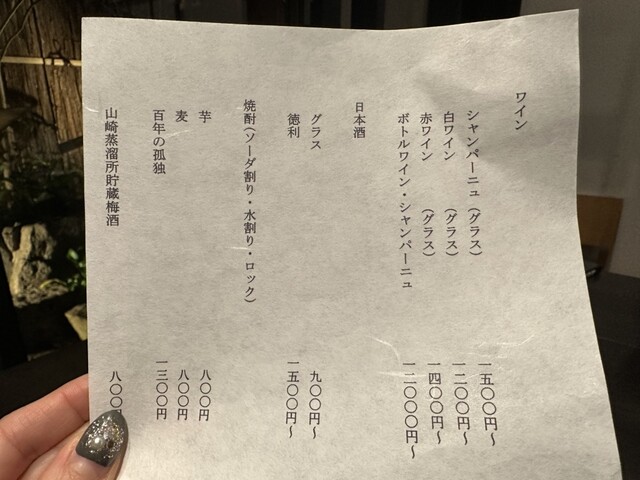 ワイン
シャンパーニュ（グラス） 一五〇〇円～
白ワイン （グラス） 一二〇〇円～
赤ワイン （グラス） 一四〇〇円～
ボトルワイン・シャンパーニュ 一二〇〇〇円～
日本酒
グラス 九〇〇円～
徳利 一五〇〇円～
焼酎（ソーダ割り・水割り・ロック）
芋 八〇〇円
麦 八〇〇円
百年の孤独 一三〇〇円
山崎蒸溜所貯蔵梅酒 八〇〇